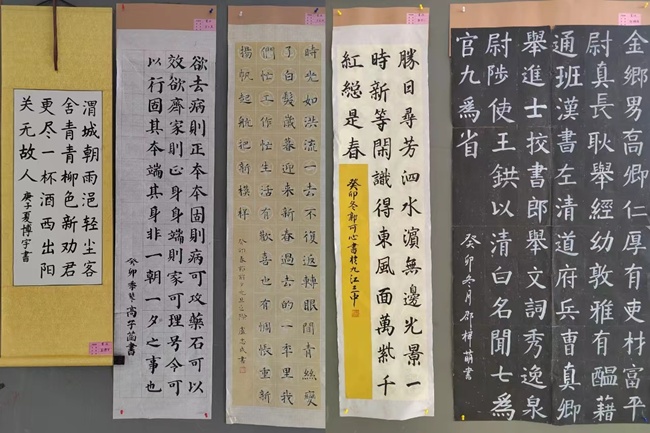 渭城朝雨浥轻尘客
舍青青柳色新劝君
更尽一杯酒西出阳
关无故人 庚子夏博宇書
欲去病則正本本固則病可攻藥石可以
效欲齊家則正身身端則家可理号令可
以行固其本端其身非一朝一夕之事也
癸卯季冬 高子菡書
時光如洪流一去不復返轉眼間青絲變
了白髮歲暮迎來新春過去的一年里我
們忙工作忙生活有歡喜也有惆悵重新
揚帆起航把新模样
盧志武書
勝日尋芳泗水濱無邊光景一
時新等閑識得東風面萬紫千
紅總是春
癸卯冬郭可心書於九江三中
金鄉男高卿仁厚有吏材富平
尉真長耿舉經幼敦雅有醞藉
通班漢書左清道府兵曹真卿
舉進士挍書郎舉文詞秀逸泉
尉陟使王鉷以清白名聞七爲
官九爲省
癸卯冬月邵梓萌書